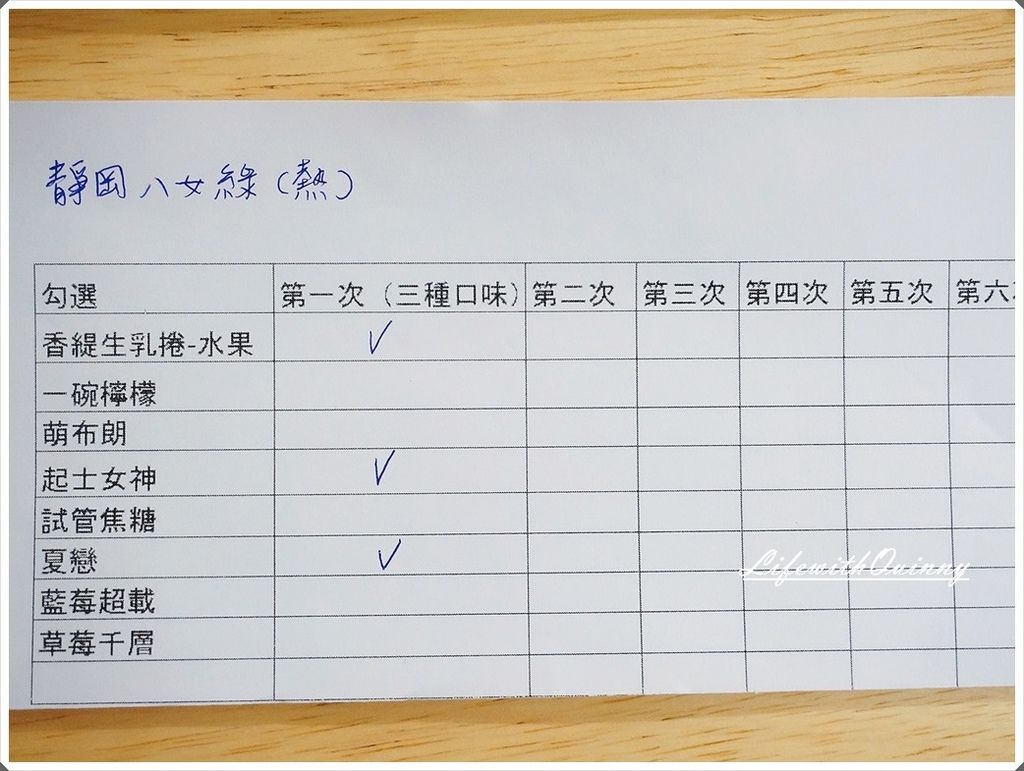 靜岡八女綠(熱)
勾選 第一次（三種口味） 第二次 第三次 第四次 第五次 第六
香緹生乳捲-水果 ✓
一碗檸檬
萌布朗
起士女神 ✓
試管焦糖
夏戀 ✓
LifewithQuinny
藍莓超載
草莓千層